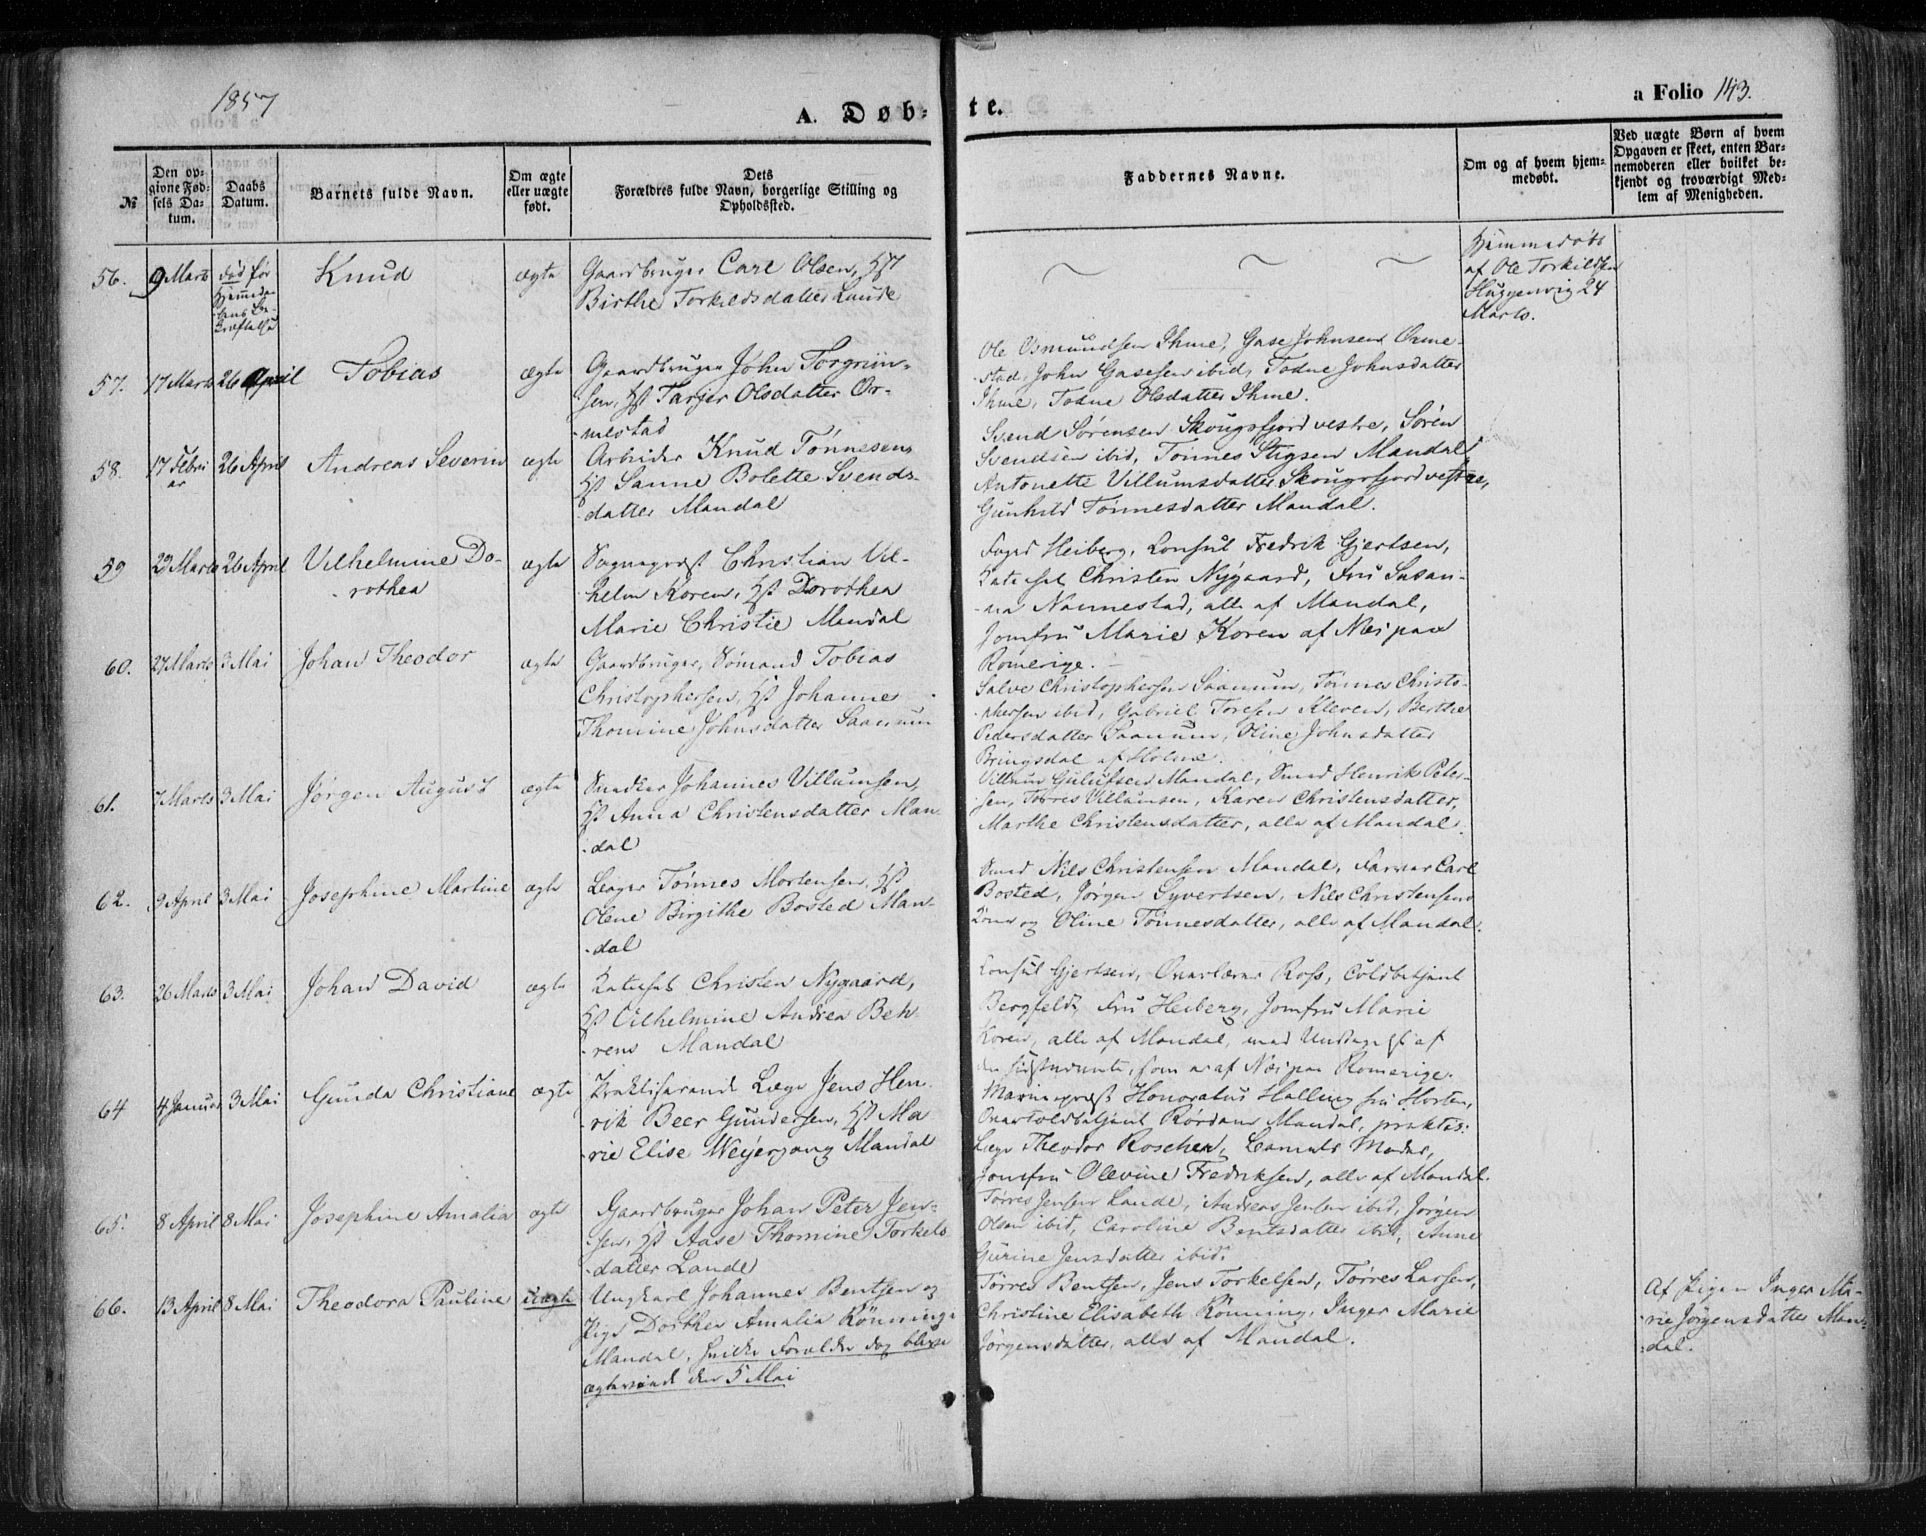 1857
A. Døb-
te.
a Folio 143.
№
Den op-
givne Fød-
sels Da-
tum.
Daabs
Datum.
Barnets fulde Navn.
Om ægte
eller uægte
født.
Dets
Forældres fulde Navn, borgerlige Stilling og
Opholdssted.
Faddernes Navne.
Om og af hvem hjem-
medøbt.
Ved uægte Børn af hvem
Opgaven er skeet, enten Bar-
nemoderen eller hvilket be-
kjendt og troværdigt Med-
lem af Menigheden.
56.
9 Marts
død før
Knud
ægte
Gaardbruger Carl Olsen, Hst
Birthe Torkildsdatter Lande
Hjemmedøbt
af Ole Torkildsen
Huggenvig 24
Marts.
57.
17 Marts
26 April
Tobias
ægte
Gaardbruger John Torgrim-
sen, Hst Tarjer Olsdatter Or-
mestad
Ole Osmundsen Ihme, Gase Johnsen Orme-
stad, John Gasesen ibid, Todne Johnsdatter
Ihme, Todne Olsdatter Ihme.
58.
17 Febru
ar
26 April
Andreas Severin
ægte
Arbeider Knud Tønnesen,
Hst Sanne Bolette Svends-
datter Mandal
Svend Sørensen Skougsfjord vestre, Søren
Svendsen ibid, Tønnes Stigsen Mandal,
Antonette Villumsdatter Skougsfjord vestre,
Gunhild Tønnesdatter Mandal.
59
29 Marts
26 April
Vilhelmine Do-
rothea
ægte
Sognepræst Christian Vil-
helm Koren, Hst Dorothea
Marie Christie Mandal
Foged Heiberg, Consul Fredrik Gjertsen,
Kateket Christen Nygaard, Fru Susan-
na Nannestad, alle af Mandal,
Jomfru Marie Koren af Næs paa
Romerige.
60.
27 Marts
3 Mai
Johan Theodor
ægte
Gaardbruger, Sømand Tobias
Christophersen, Hst Johanne
Thomine Johnsdatter Saanum
Salve Christophersen Saanum, Tønnes Christo-
phersen ibid, Gabriel Toresen Kleven, Berthe
Pedersdatter Saanum, Oline Johnsdatter
Bringsdal af Holme.
61.
7 Marts
3 Mai
Jørgen August
ægte
Snedker Johannes Villumsen,
Hst Anna Christensdatter Man-
dal
Villum Gulufsen Mandal, Smed Henrik Peter-
sen, Torres Villumsen, Karen Christensdatter,
Marthe Christensdatter, alle af Mandal.
62.
9 April
3 Mai
Josephine Martine
ægte
Tønnes Mortensen, Hst
Olene Birgithe Bosted Man-
dal
Smed Nils Christensen Mandal, Farver Carl
Bosted, Jørgen Syvertsen, Nils Christensens
Kone og Oline Tønnesdatter, alle af Mandal.
63.
26 Marts
3 Mai
Johan David
ægte
Kateket Christen Nygaard,
Hst Vilhelmine Andrea Beh-
rens Mandal
Consul Gjertsen, Overlærer Ross, Toldbetjent
Bergfeldt, Fru Heiberg, Jomfru Marie
Koren, alle af Mandal, med Undtagelse af
den sidstnævnte, som er af Næs paa Romerige.
64
4 Januar
3 Mai
Gunda Christiane
ægte
Praktiserende Læge Jens Hen-
rik Beer Gundersen, Hst Ma-
rie Elise Weyergang Mandal
Marinepræst Honoratus Halling fra Horten,
Overtoldbetjent Rørdam Mandal, praktis:
Læge Theodor Roscher, Barnets Moder,
Jomfru Olevine Fredriksen, alle af Mandal.
65.
8 April
8 Mai
Josephine Amalia
ægte
Gaardbruger Johan Peter Jen-
sen, Hst Aase Thomine Torkels-
datter Lande
Tørres Jensen Lande, Andreas Jensen ibid, Jørgen
Olsen ibid, Caroline Bentsdatter ibid, Anne
Gurine Jensdatter ibid.
66.
13 April
8 Mai
Theodora Pauline
uægte
Ungkarl Johannes Bentsen og
Pige Dorthea Amalia Rönninge
Mandal, hvilke Forældre dog bleve
ægteviede den 5 Mai
Tørres Bentsen, Jens Torkelsen, Tørres Larsen,
Christine Elisabeth Rönning, Inger Marie
Jørgensdatter, alle af Mandal.
Af Pigen Inger Ma-
rie Jørgensdatter Man-
dal.